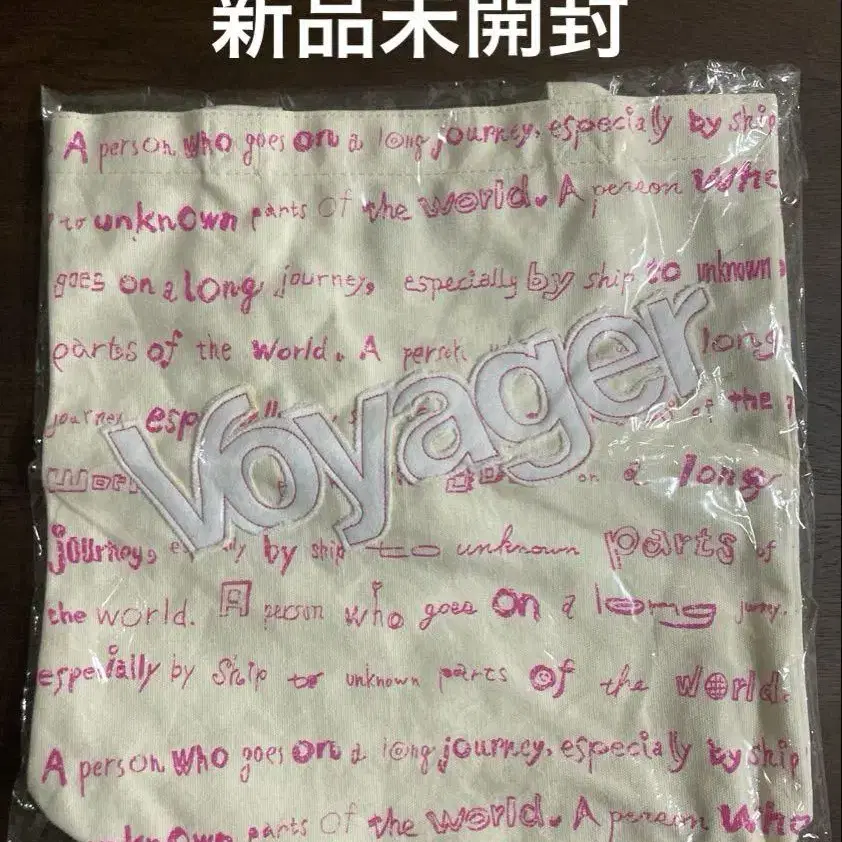 新品未開封
A person who goes on a long journey, especially by ship
to unknown parts of the world. A person who
goes on a long journey, especially by ship to unknown
parts of the world. A person long
journey the
Voyager
on a long
journey, by ship to unknown parts of
the world. A person who goes on a long journey.
especially by ship to unknown parts of the world.
A person who goes on a long journey, especially by ship
unknown parts of the world. A person who